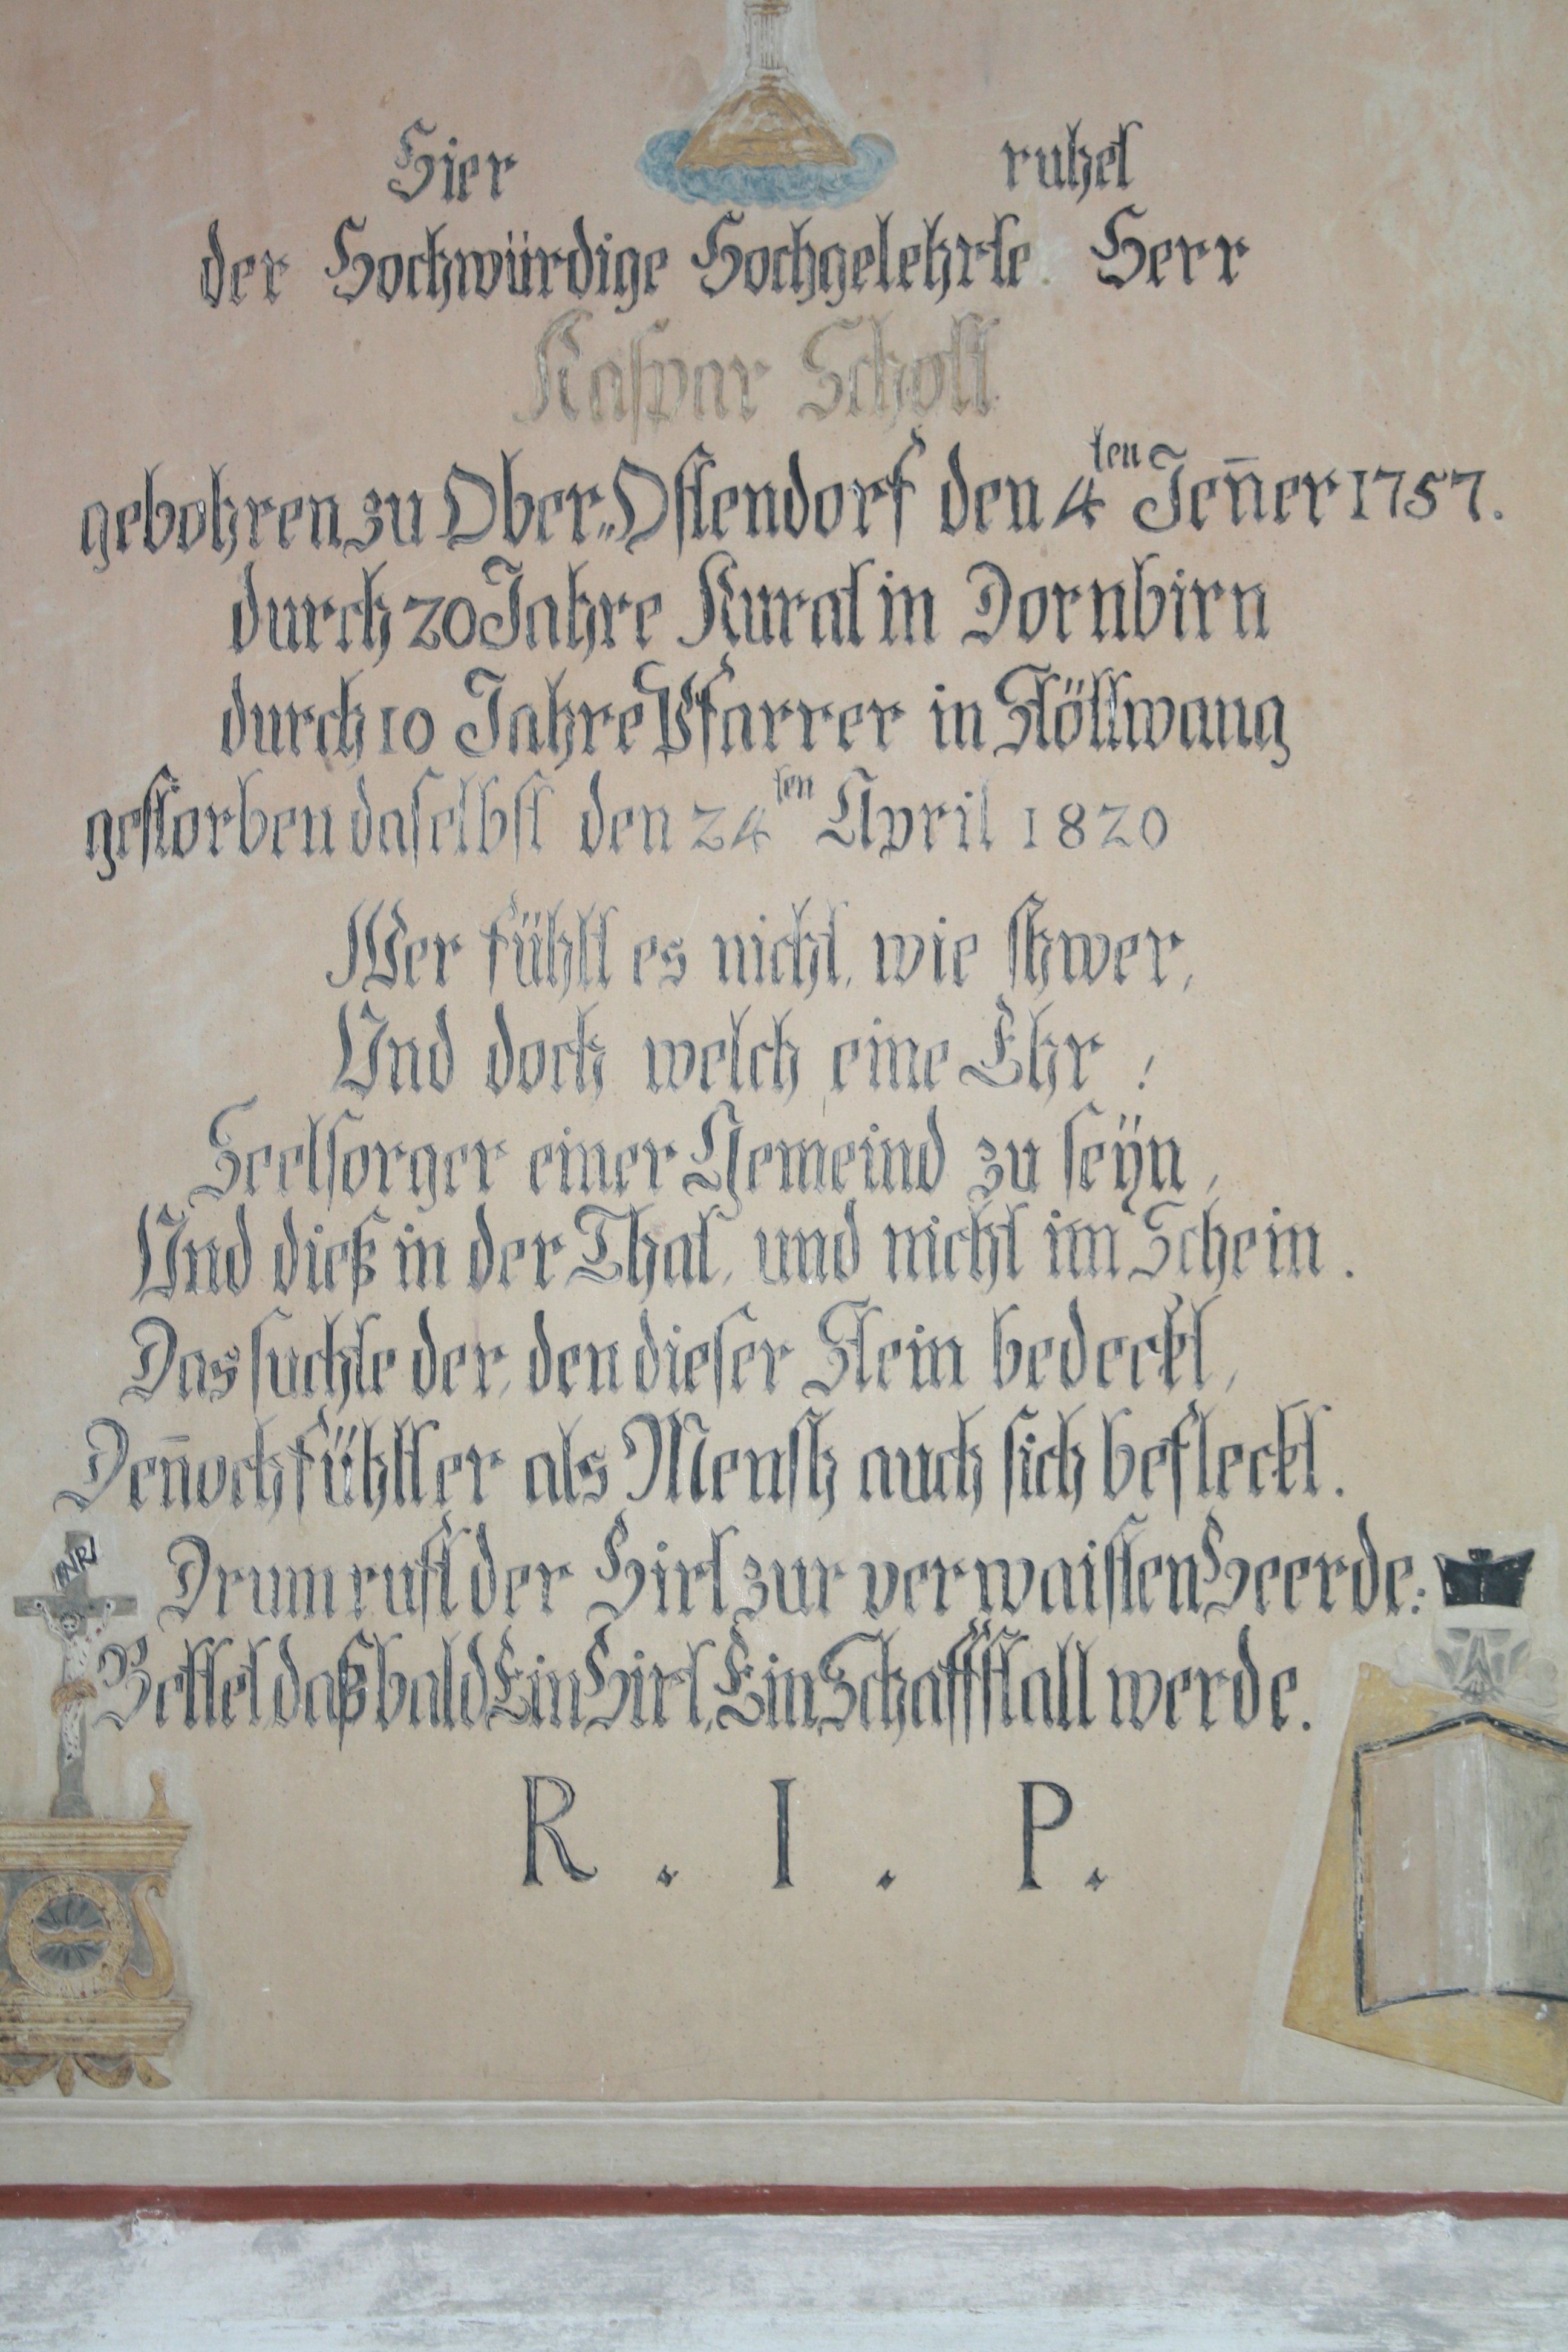 Hier ruhet
der Hochwürdige Hochgelehrte Herr
Kaspar Scholl
gebohren zu Ober„Ostendorf den 4ten Jen̄er 1757.
durch 20 Jahre Kurat in Dornbirn
durch 10 Jahre Pfarrer in Stöttwang
gestorben daselbst den 24ten April 1820
Wer fühlt es nicht, wie schwer,
Und doch welch eine Ehr !
Seelsorger einer Gemeind zu seÿn,
Und dieß in der That, und nicht im Schein.
Das suchte der, den dieser Stein bedeckt,
Den̄och fühlt er als Mensch auch sich befleckt.
INRI
Drum ruft der Hirt zur verwaisten Heerde:
Bettet daß bald Ein Hirt, Ein Schaffstall werde.
R . I . P .